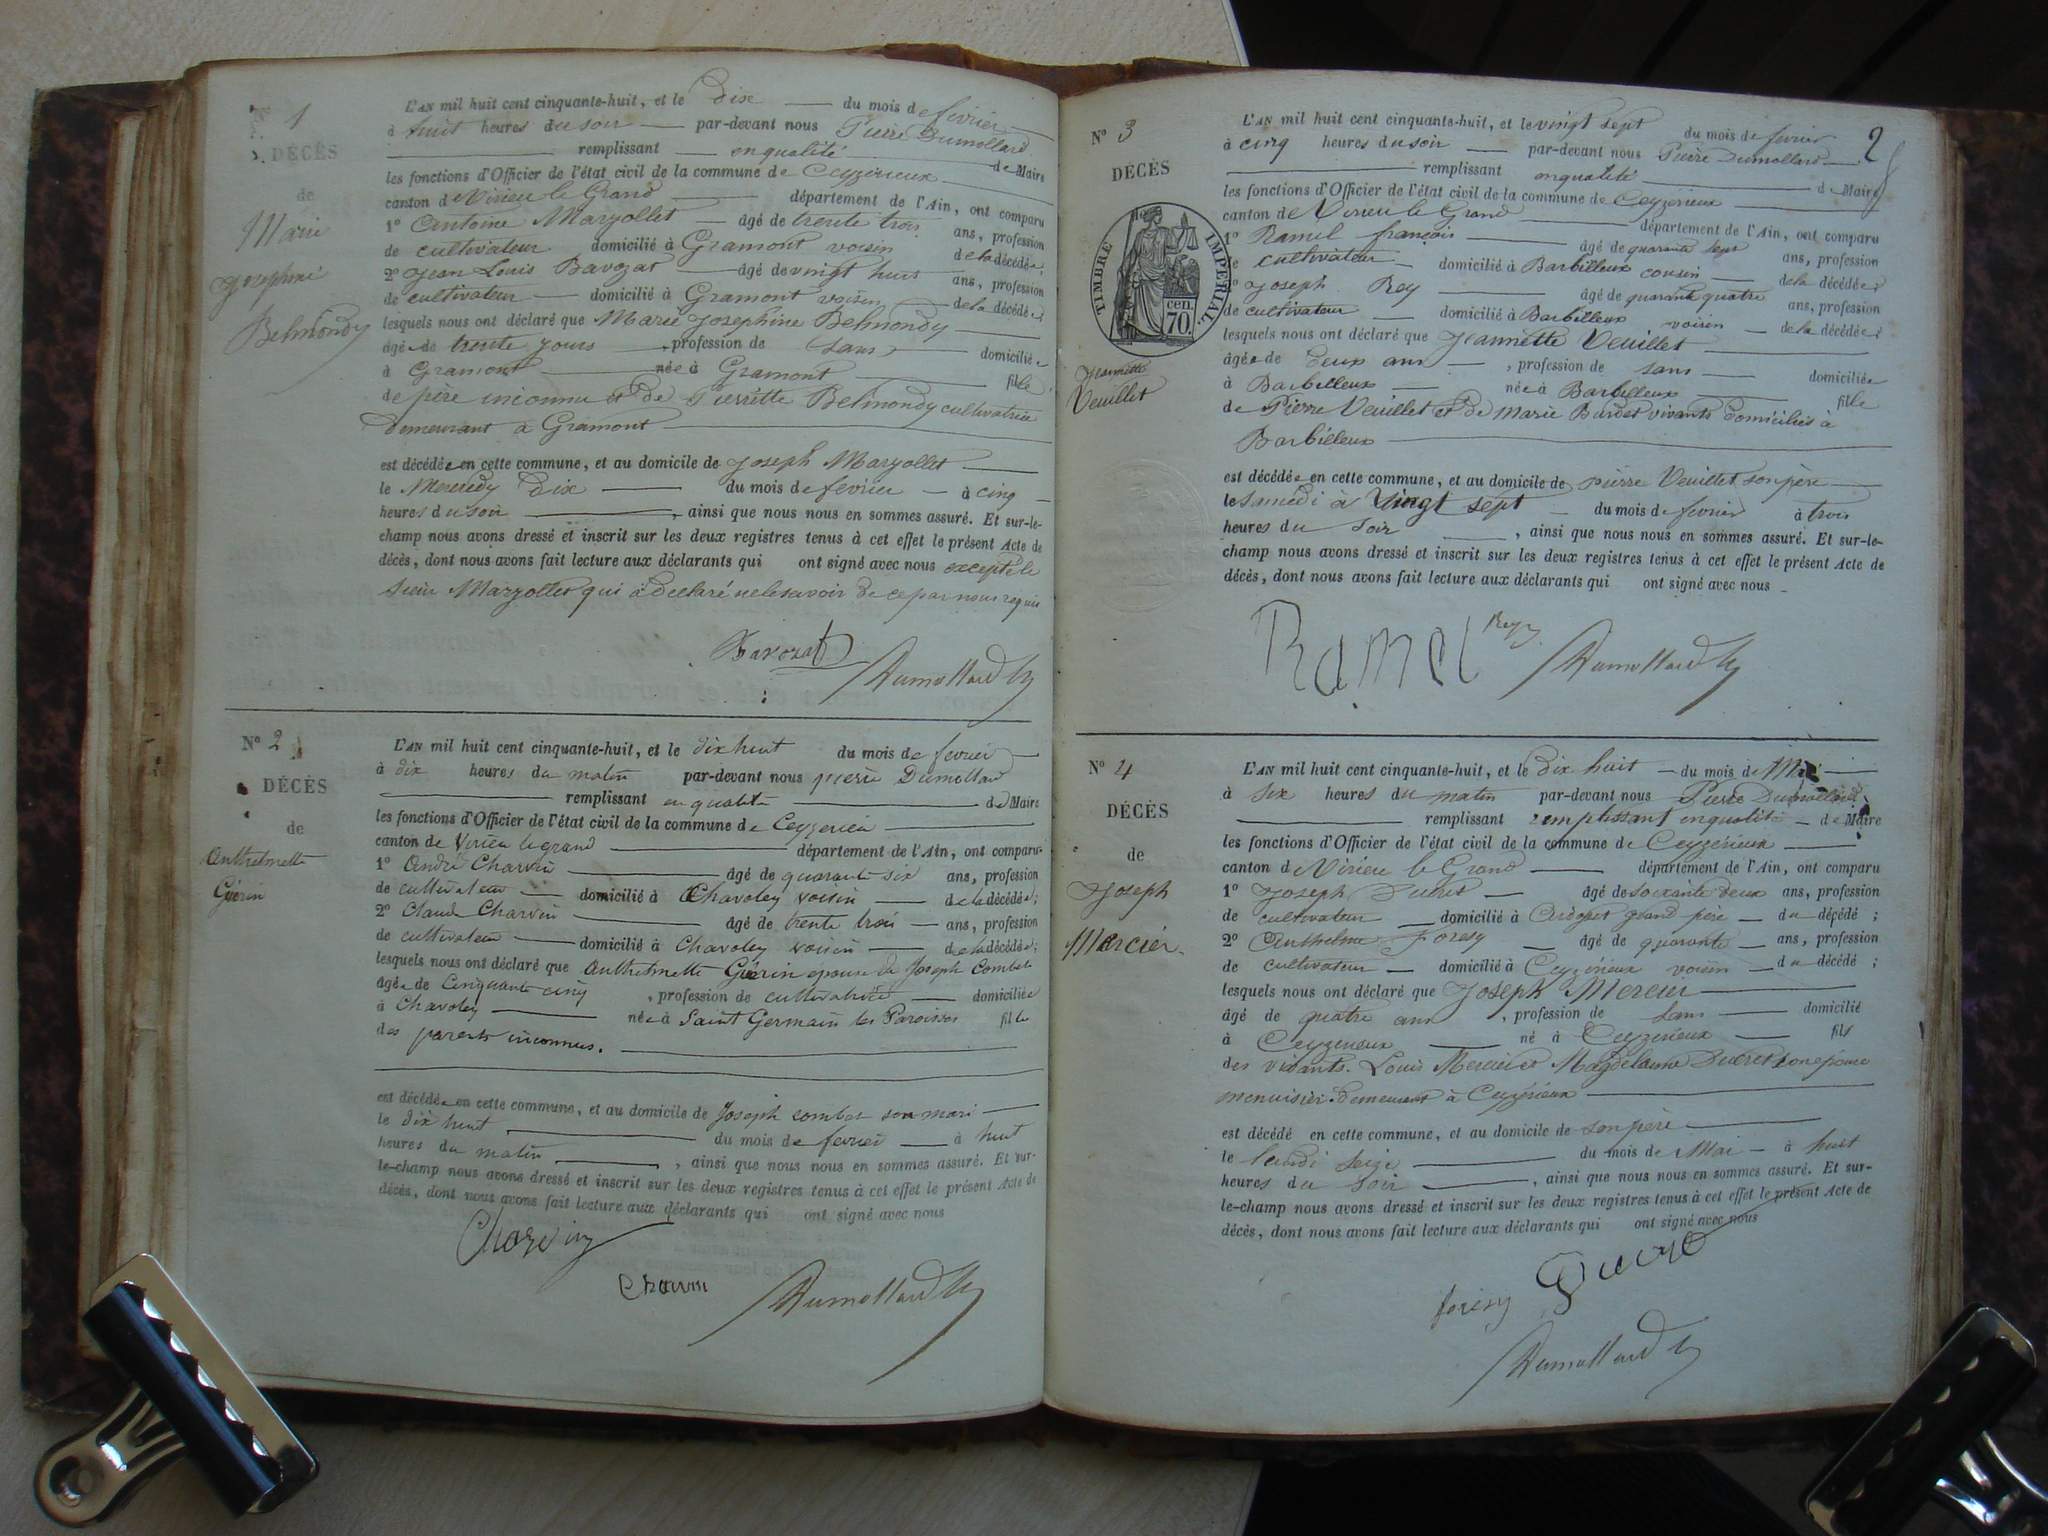 N° 1
DÉCÈS
de
Marie
Josephine
Belmondy
L'AN mil huit cent cinquante-huit, et le Dix du mois de fevrier
à huit heures du soir par-devant nous Pierre Dumollard
remplissant en qualité de Maire
les fonctions d'Officier de l'état civil de la commune de Ceyzerieux
canton de Virieu le Grand département de l'Ain, ont comparu
1° Antoine Marjollet âgé de trente trois ans, profession
de cultivateur domicilié à Gramont voisin de la décédée;
2° Jean Louis Bavozat âgé de vingt huit ans, profession
de cultivateur domicilié à Gramont voisin de la décédée;
lesquels nous ont déclaré que Marie Josephine Belmondy
âgée de trente jours, profession de sans domiciliée
à Gramont née à Gramont fille
de père inconnu et de Pierrette Belmondy cultivatrice
Demeurant à Gramont
est décédée en cette commune, et au domicile de Joseph Marjollet
le Mercredy Dix du mois de fevrier à cinq
heures du soir, ainsi que nous nous en sommes assuré. Et sur-le-
champ nous avons dressé et inscrit sur les deux registres tenus à cet effet le présent Acte de
décès, dont nous avons fait lecture aux déclarants qui ont signé avec nous excepté le
sieur Marjollet qui à déclaré ne le savoir de ce par nous requis
Bavozat
Dumollard
N° 2
DÉCÈS
de
Anthelmette
Guérin
L'AN mil huit cent cinquante-huit, et le dix huit du mois de fevrier
à dix heures du matin par-devant nous pierre Dumollard
remplissant en qualité de Maire
les fonctions d'Officier de l'état civil de la commune de Ceyzerieu
canton de Virieu le grand département de l'Ain, ont comparu
1° André Charvin âgé de quarante six ans, profession
de cultivateur domicilié à Chavoley voisin de la décédée;
2° Claude Charvin âgé de trente trois ans, profession
de cultivateur domicilié à Chavoley voisin de la décédée;
lesquels nous ont déclaré que Anthelmette Guérin epouse de Joseph Combet
âgée de Cinquante cinq, profession de cultivatrice domiciliée
à Chavoley née à Saint Germain les Paroisses fille
des parents inconnus.
est décédée en cette commune, et au domicile de Joseph combet son mari
le dix huit du mois de fevrier à huit
heures du matin, ainsi que nous nous en sommes assuré. Et sur-
le-champ nous avons dressé et inscrit sur les deux registres tenus à cet effet le présent Acte de
décès, dont nous avons fait lecture aux déclarants qui ont signé avec nous
Charvin
Charvin
Dumollard
2
N° 3
DÉCÈS
TIMBRE IMPÉRIAL.
70 cen.
Jeannette
Veuillet
L'AN mil huit cent cinquante-huit, et le vingt sept du mois de fevrier
à cinq heures du soir par-devant nous Pierre Dumollard
remplissant en qualité de Maire
les fonctions d'Officier de l'état civil de la commune de Ceyzerieux
canton de Virieu le Grand département de l'Ain, ont comparu
1° Ramel françois âgé de quarante sept ans, profession
de cultivateur domicilié à Barbilleux cousin de la décédée;
2° Joseph Rey âgé de quarante quatre ans, profession
de cultivateur domicilié à Barbilleux voisin de la décédée;
lesquels nous ont déclaré que Jeannette Veuillet
âgée de deux ans, profession de sans domiciliée
à Barbilleux née à Barbilleux fille
de Pierre Veuillet et de Marie Burdet vivants domiciliés à
Barbilleux
est décédée en cette commune, et au domicile de pierre Veuillet son père
le samedi à vingt sept du mois de fevrier à trois
heures du soir, ainsi que nous nous en sommes assuré. Et sur-le-
champ nous avons dressé et inscrit sur les deux registres tenus à cet effet le présent Acte de
décès, dont nous avons fait lecture aux déclarants qui ont signé avec nous
Ramel Rey
Dumollard
N° 4
DÉCÈS
de
Joseph
Mercier
L'AN mil huit cent cinquante-huit, et le dix huit du mois de Mai
à six heures du matin par-devant nous Pierre Dumollard
remplissant remplissant en qualité de Maire
les fonctions d'Officier de l'état civil de la commune de Ceyzérieux
canton de Virieu le Grand département de l'Ain, ont comparu
1° Joseph Ducret âgé de soixante deux ans, profession
de cultivateur domicilié à Ardosset grand père du décédé;
2° Anthelme Foresy âgé de quarante ans, profession
de cultivateur domicilié à Ceyzérieux voisin du décédé;
lesquels nous ont déclaré que Joseph Mercier
âgé de quatre ans, profession de sans domicilié
à Ceyzerieux né à Ceyzerieux fils
des vivants. Louis Mercier et Magdelaine Ducret son epouse
menuisier. demeurant à Ceyzérieux
est décédé en cette commune, et au domicile de son père
le lundi seize du mois de Mai à huit
heures du soir, ainsi que nous nous en sommes assuré. Et sur-
le-champ nous avons dressé et inscrit sur les deux registres tenus à cet effet le présent Acte de
décès, dont nous avons fait lecture aux déclarants qui ont signé avec nous
foresy Ducret
Dumollard